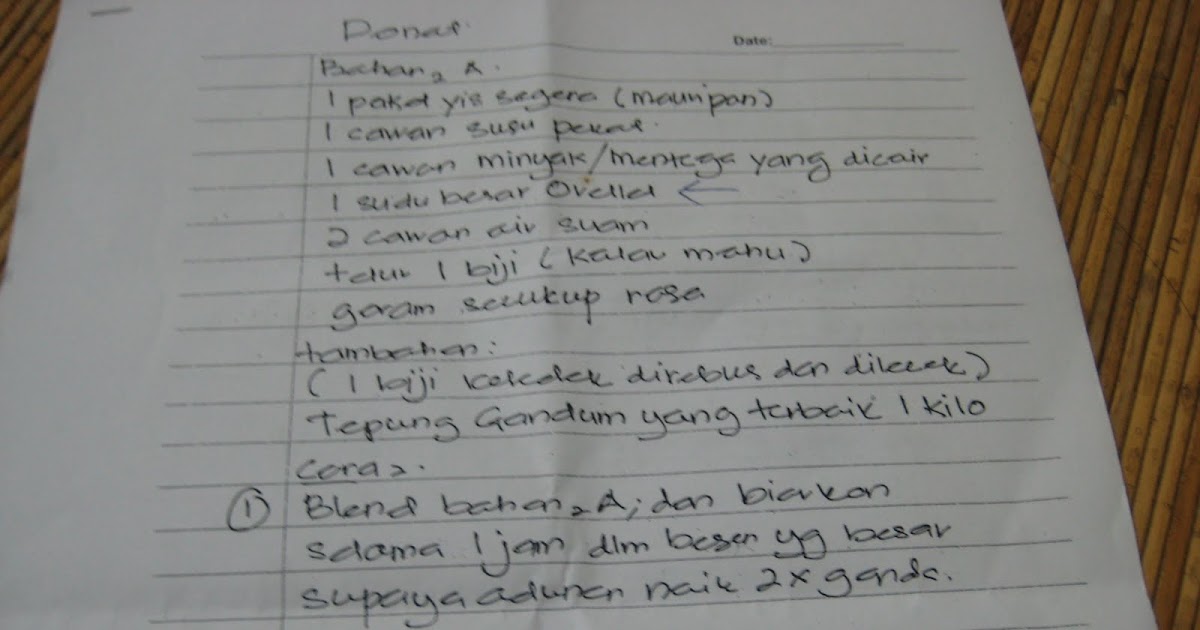 Donat.
Date:
Bahan2 A.
1 paket yis segera (mauripan)
1 cawan susu pekat.
1 cawan minyak/mentega yang dicair
1 sudu besar Ovellet
2 cawan air suam
telur 1 biji (kalau mahu)
garam secukup rasa
tambahan:
(1 biji keledek direbus dan dilecek)
Tepung Gandum yang terbaik 1 kilo
Cara2.
① Blend bahan2 A; dan biarkan
selama 1 jam dlm besen yg besar
supaya adunan naik 2x ganda.